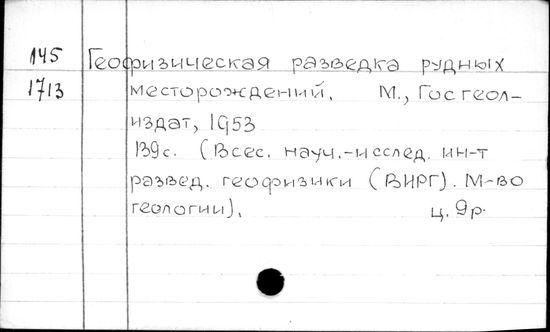 145 Геофизическая разведка рудных
1713 месторождений. М., Госгеол-
издат, 1953
139с. (Всес. науч.-исслед. ин-т
развед. геофизики (ВИРГ). М-во
геологии). ц. 9р.